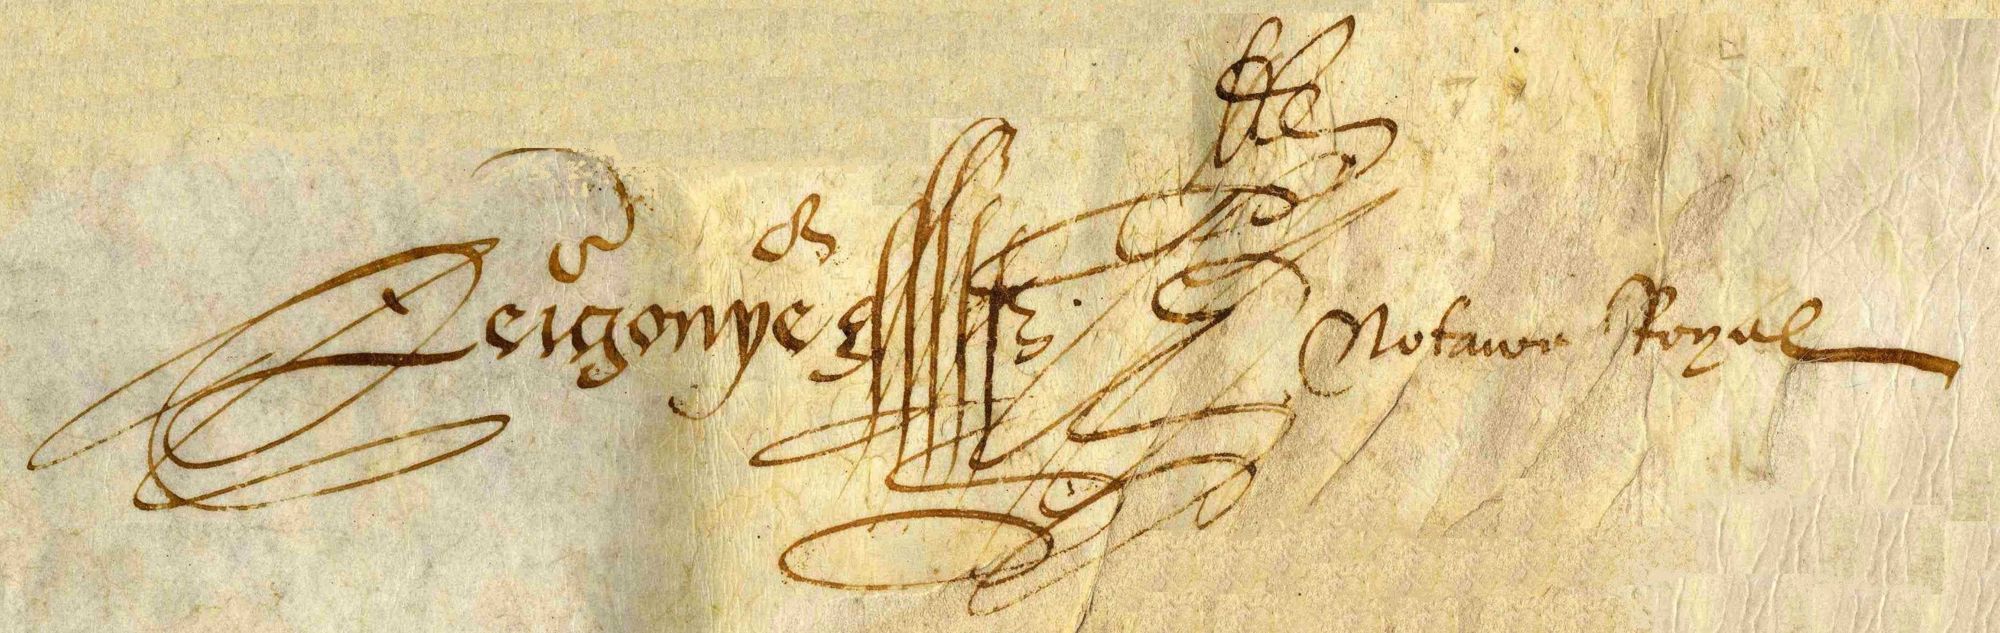 Leigonye Notaire Royal